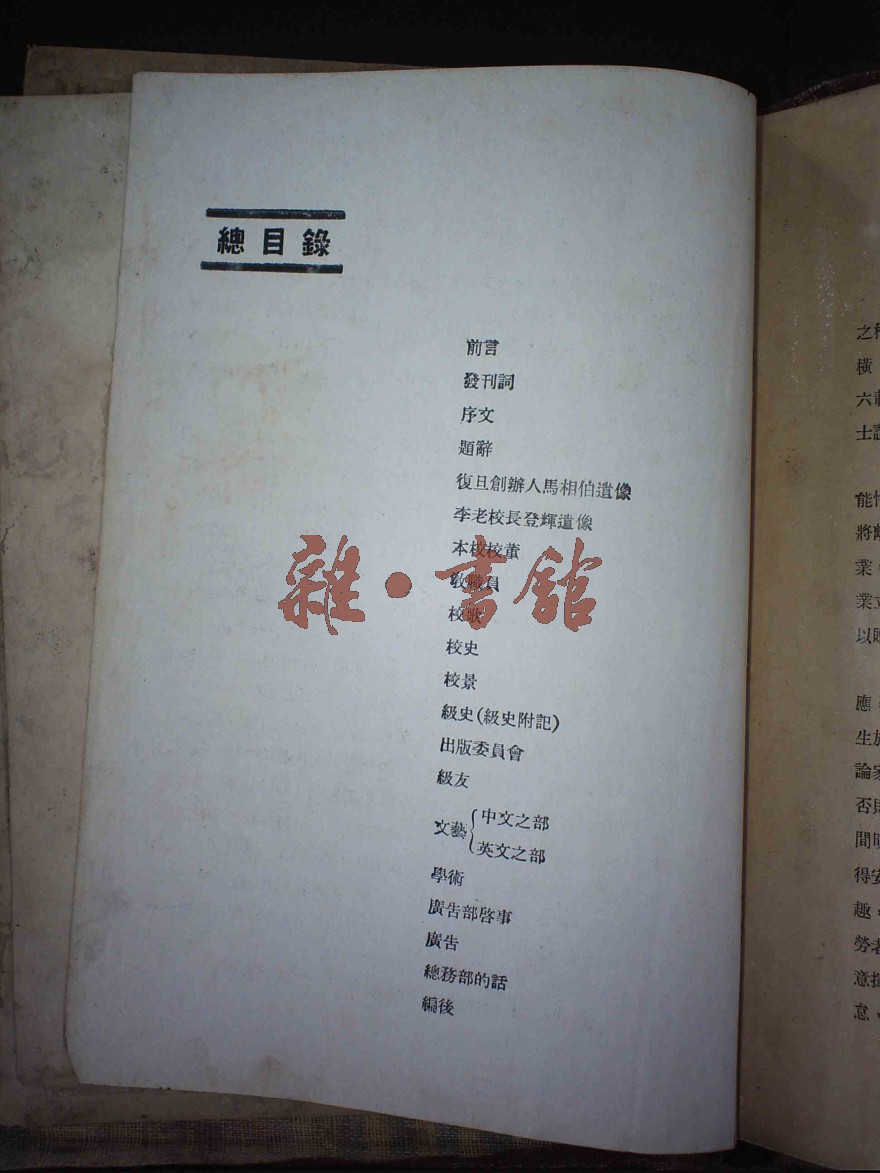 總目錄
前言
發刊詞
序文
題辭
復旦創辦人馬相伯遺像
李老校長登輝遺像
本校校董
教職員
校歌
校史
校景
級史(級史附記)
出版委員會
級友
文藝{中文之部
英文之部
學術
廣告部啓事
廣告
總務部的話
編後
雜·書館
之
橫
六
士
能
將
業
業
以
應
生
論
否
間
得
趣
勞
意
怠